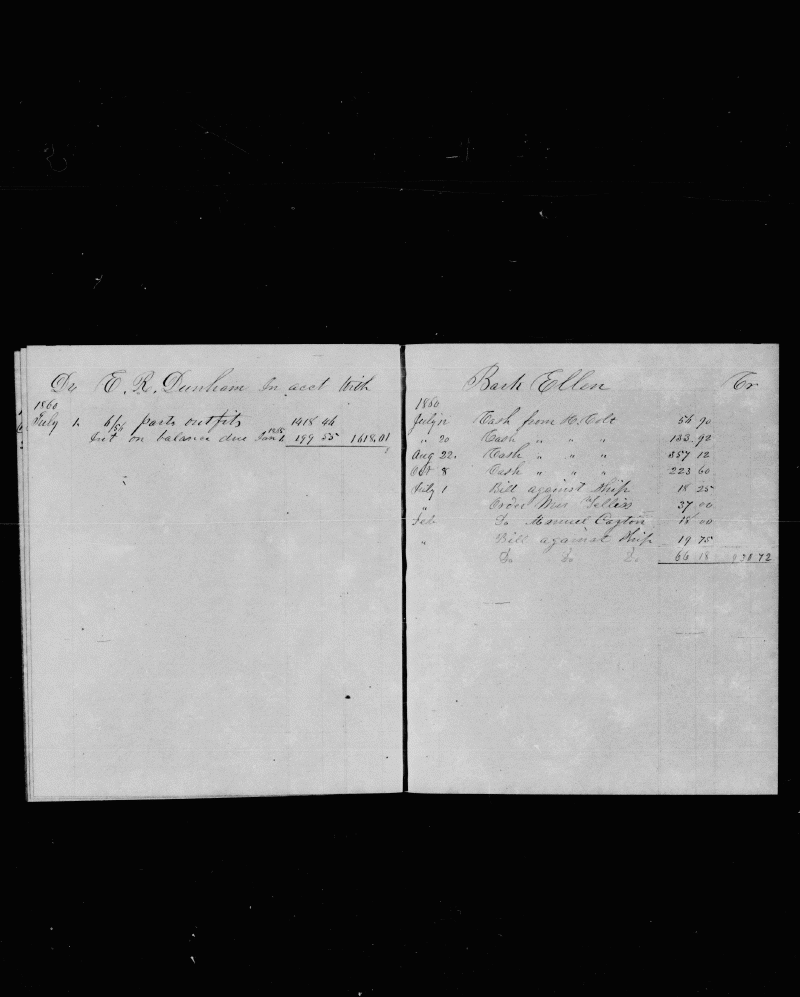 Dr E. R. Dunham In acct With
1860
July 1. 6/56 parts outfits 1418 46
Int on balance due Jan 199 55 1618.01
Bark Ellen Cr
1860
July Cash from H. Colt 56 90
" 20 Cash " " " 133.92
Aug 22. Cash " " " 357 12
Oct 8 Cash " " " 223 60
July 1 Bill against Ship 18 25
" Order Wm 37.00
Feb Do Manuel 18 00
" Bill against Ship 19 75
Do Do Do 66 18 938 72